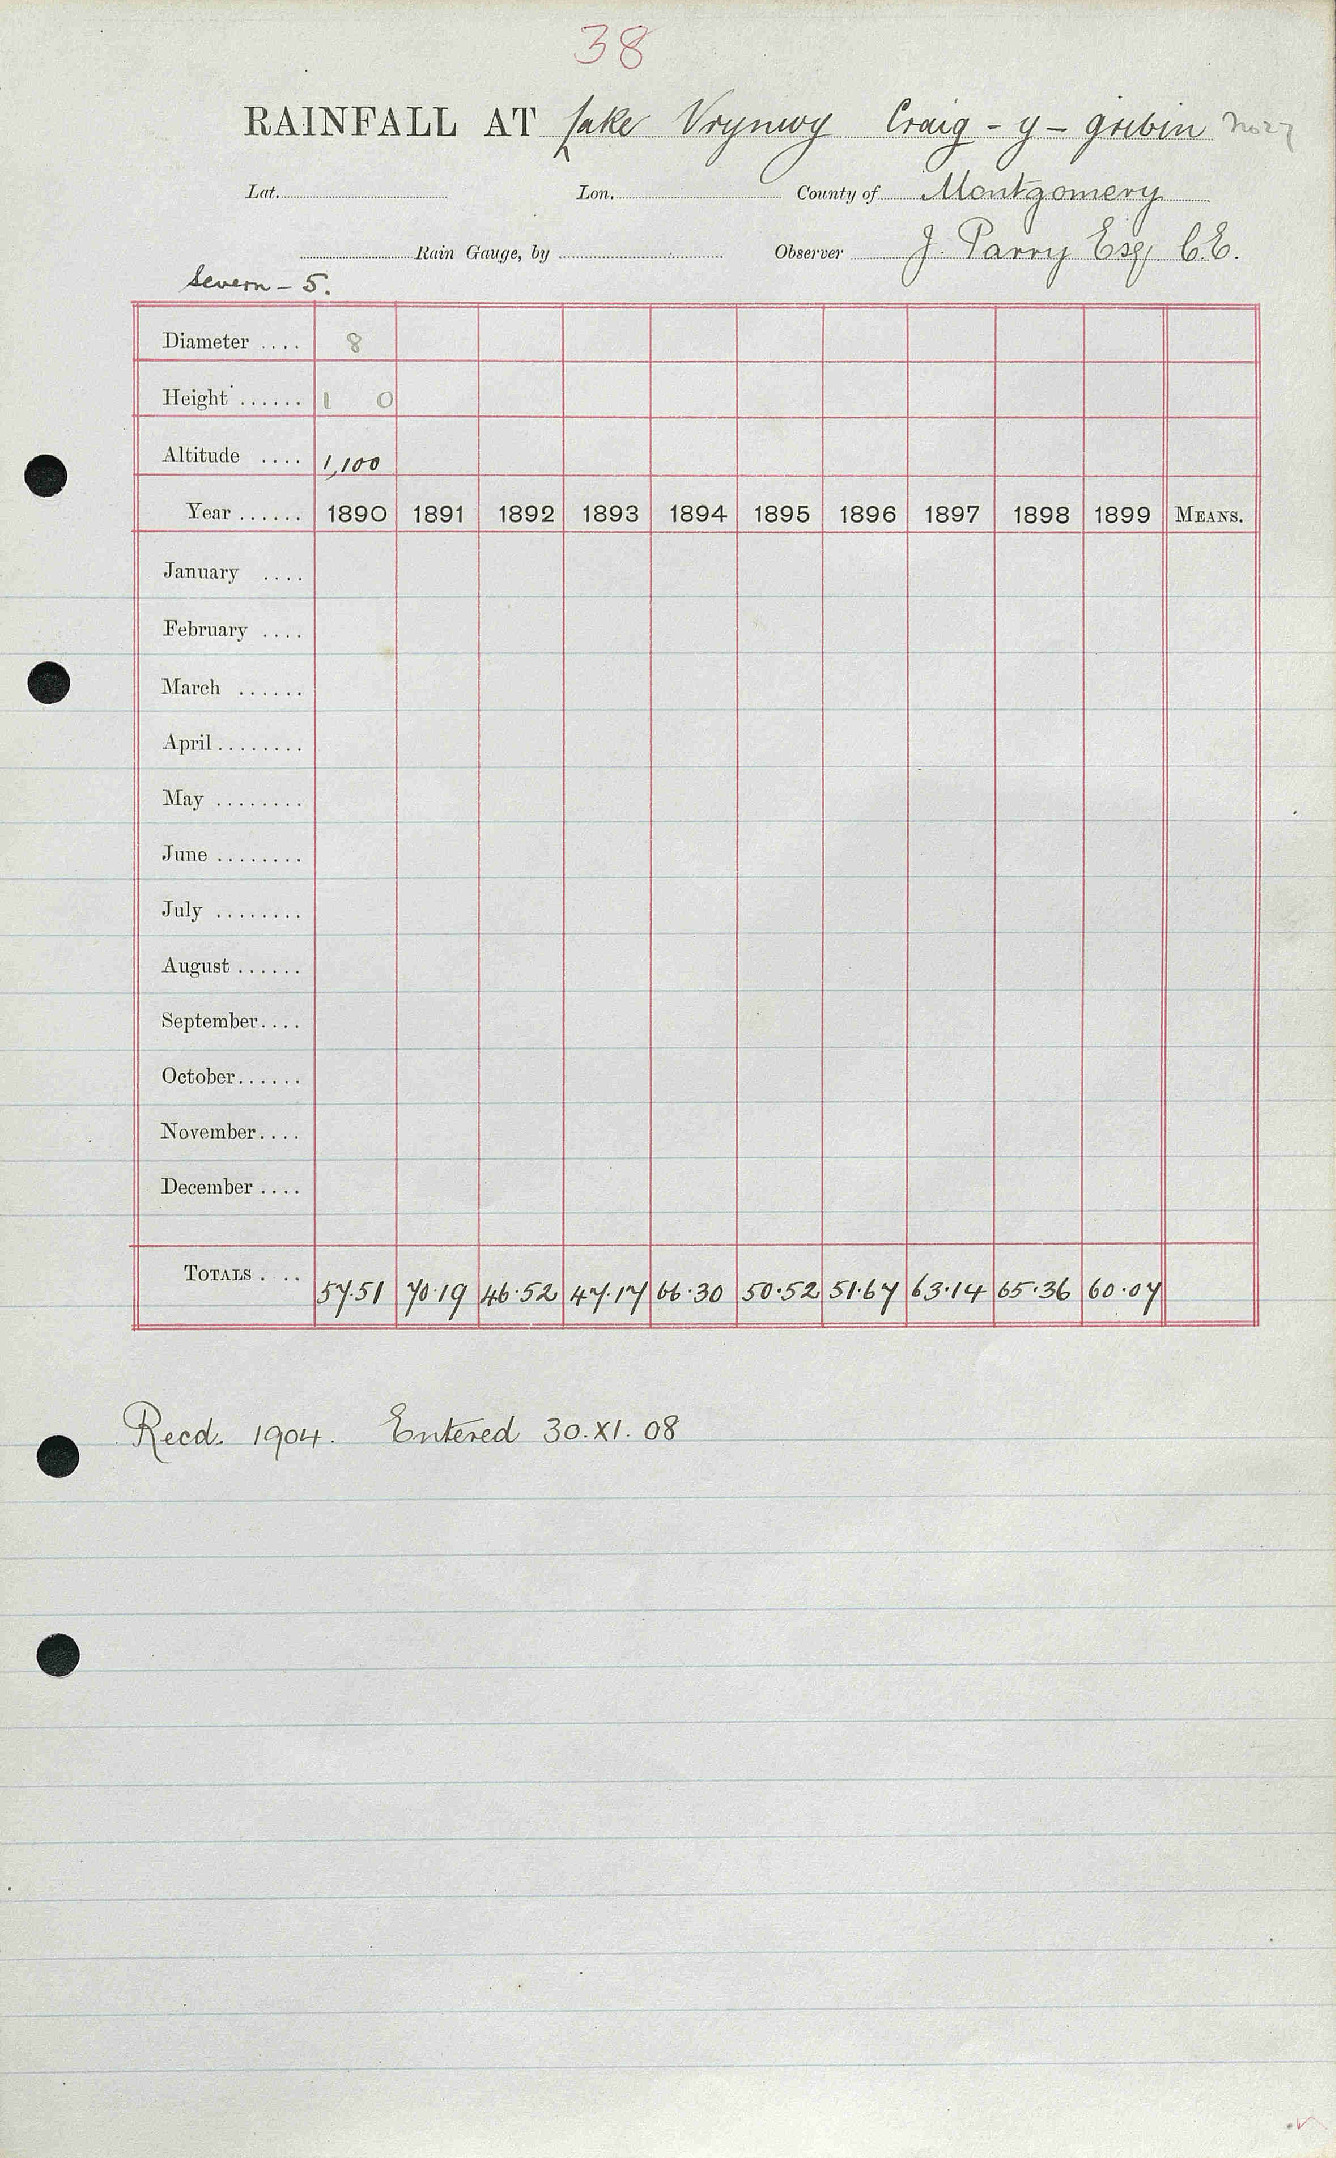 38
RAINFALL AT Lake Vrynwy Craig - y - gribin No 27
Lat. Lon. County of Montgomery
Rain Gauge, by Observer J. Parry Esq C.E.
Severn - 5.
Diameter .... 8
Height ...... 1 0
Altitude .... 1,100
Year ...... 1890 1891 1892 1893 1894 1895 1896 1897 1898 1899 MEANS.
January ....
February ....
March ......
April ........
May ........
June ........
July ........
August ......
September ....
October ......
November ....
December ....
TOTALS .... 57.51 70.19 46.52 47.17 66.30 50.52 51.67 63.14 65.36 60.07
Recd. 1904. Entered 30.XI.08